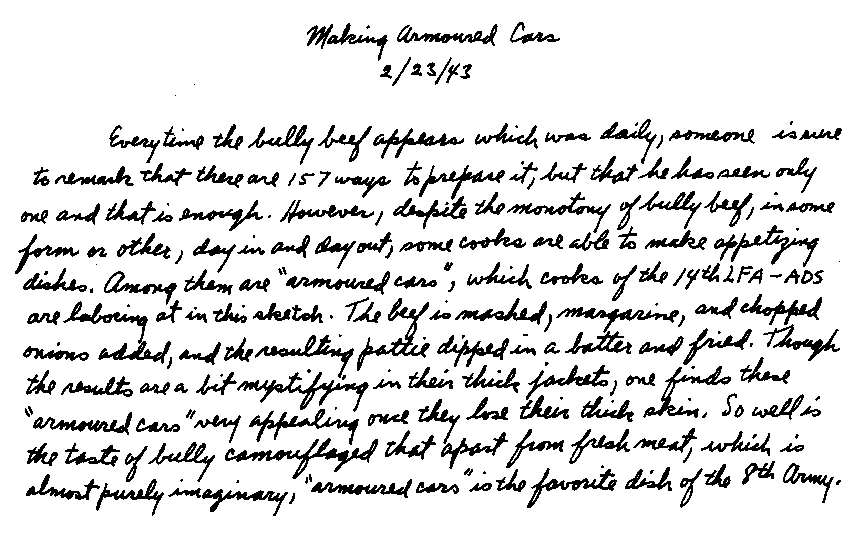 Making Armoured Cars
2/23/43
Everytime the bully beef appears which was daily, someone is sure
to remark that there are 157 ways to prepare it, but that he has seen only
one and that is enough. However, despite the monotony of bully beef, in some
form or other, day in and day out, some cooks are able to make appetizing
dishes. Among them are "armoured cars", which cooks of the 14th LFA-ADS
are laboring at in this sketch. The beef is mashed, margarine, and chopped
onions added, and the resulting pattie dipped in a batter and fried. Though
the results are a bit mystifying in their thick jackets, one finds these
"armoured cars" very appealing once they lose their thick skin. So well is
the taste of bully camouflaged that apart from fresh meat, which is
almost purely imaginary, "armoured cars" is the favorite dish of the 8th Army.